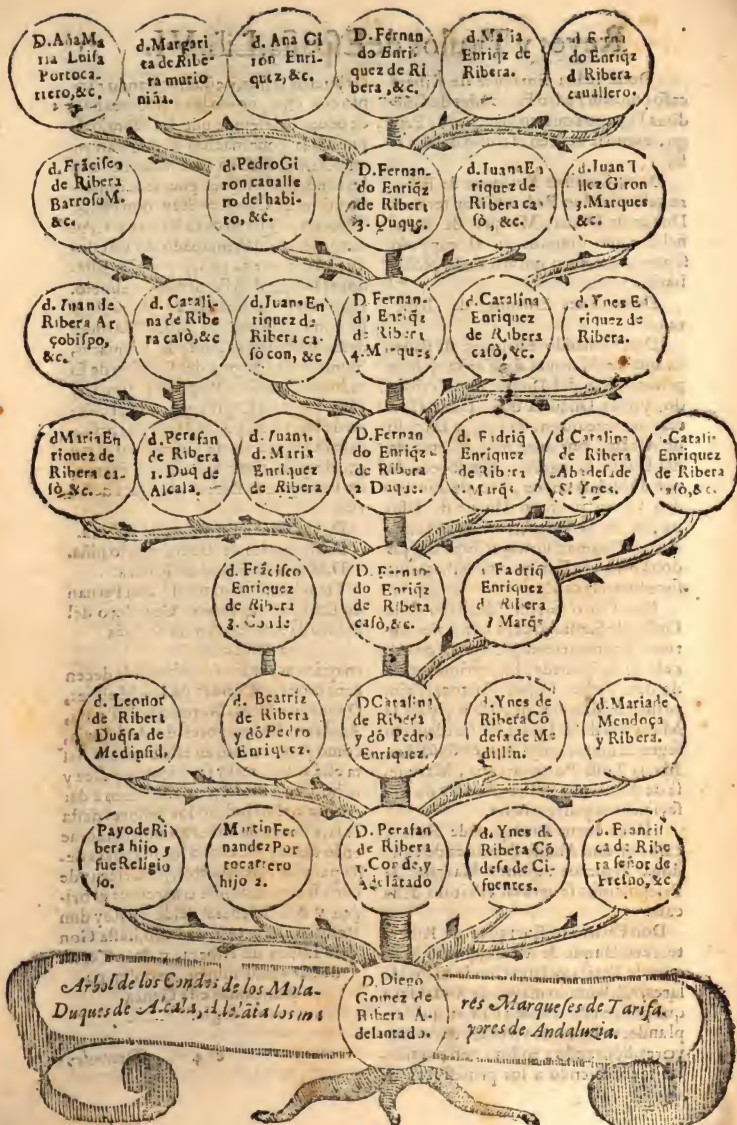 D. AñaMa
ria Luisa
Portoca-
rrero, &c.
d. Margari
ta de Ribe-
ra murio
niña.
d. Ana Gi
rón Enri-
quez, &c.
D. Fernan
do Enri-
quez de Ri
bera, &c.
d. Maria
Enriqz de
Ribera.
do Enriqz
d Ribera
cauallero.
d. Frãcisco
de Ribera
Barroso M.
&c.
d. Pedro Gi
ron caualle
ro del habi-
to, &c.
D. Fernan-
do Enriqz
de Ribera
3. Duque.
d. Iuana En
riquez de
Ribera ca-
sò, &c.
d. Iuan T
llez Giron
3. Marques
&c.
d. Iuan de
Ribera Ar
çobispo,
&c.
d. Catali-
na de Ribe
ra casò, &c
d. Iuana En
riquez de
Ribera ca-
sò con, &c
D. Fernan-
do Enriqz
de Ribera
4. Marques
d. Catalina
Enriquez
de Ribera
casò, &c.
d. Ynes En
riquez de
Ribera.
d Maria En
riquez de
Ribera ca-
sò, &c.
d. Perafan
de Ribera
1. Duq de
Alcala.
d. Iuana.
d. Maria
Enriquez
de Ribera
D. Fernan
do Enriqz
de Ribera
2 Duque.
d. Fadriq
Enriquez
de Ribera
Marqs
d Catalina
de Ribera
Abadesa de
S. Ynes.
Catali-
Enriquez
de Ribera
casò, &c.
d. Frãcisco
Enriquez
de Ribera
3. Conde
D. Fernan-
do Enriqz
de Ribera
casò, &c.
Fadriq
Enriquez
d Ribera
1 Marqs
d. Leonor
de Ribera
Duqsa de
Medinsid.
d. Beatriz
de Ribera
y dõ Pedro
Enriquez.
D Catalina
de Ribera
y dõ Pedro
Enriquez.
d. Ynes de
Ribera Cõ
desa de Me
dillin.
d. Maria de
Mendoça
y Ribera.
Payo de Ri
bera hijo 3
fue Religio
so.
Martin Fer
nandez Por
tocarrero
hijo 2.
D. Perafan
de Ribera
1. Conde, y
Adelãtado
d. Ynes de
Ribera Cõ
desa de Ci-
fuentes.
d. Francis
ca de Ribe
ra señor de
Fresno, &c
Arbol de los Condes de los Mola-
D. Diego
Gomez de
Ribera A-
delantado.
res Marqueses de Tarifa.
Duques de Alcala, Adelãta los ma
yores de Andaluzia.